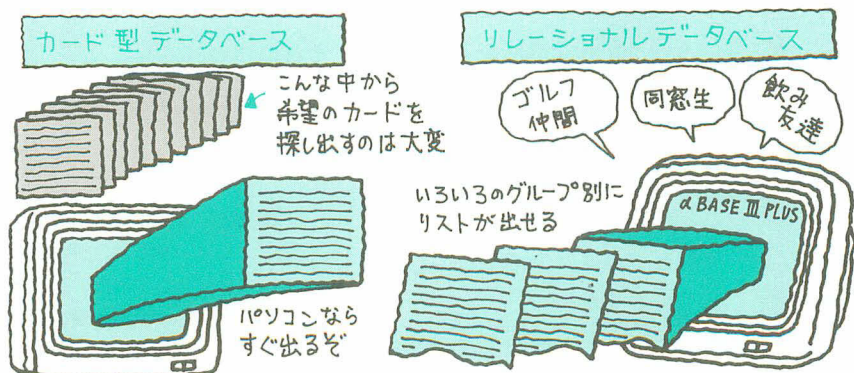 カード型データベース
こんな中から
希望のカードを
探し出すのは大変
パソコンなら
すぐ出るぞ
リレーショナルデータベース
ゴルフ
仲間
同窓生
飲み
友達
いろいろのグループ別に
リストが出せる
d BASE III PLUS